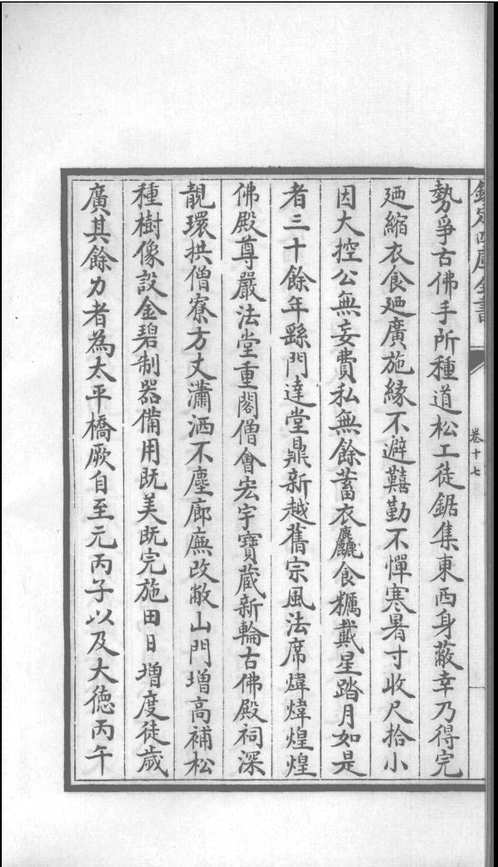 欽定四庫全書
卷十七
勢爭古佛手所種道松工徒鋸集東西身蔽幸乃得完
廼縮衣食廼廣施緣不避囏勤不憚寒暑寸收尺拾小
因大控公無妄費私無餘蓄衣麤食糲戴星踏月如是
者三十餘年繇門達堂鼎新越舊宗風法席煒煒煌煌
佛殿尊嚴法堂重閣僧會宏宇寶藏新輪古佛殿祠深
靚環拱僧寮方丈瀟洒不塵廊廡改敞山門增高補松
種樹像設金碧制器備用既美既完施田日增度徒歲
廣其餘力者為太平橋厥自至元丙子以及大德丙午